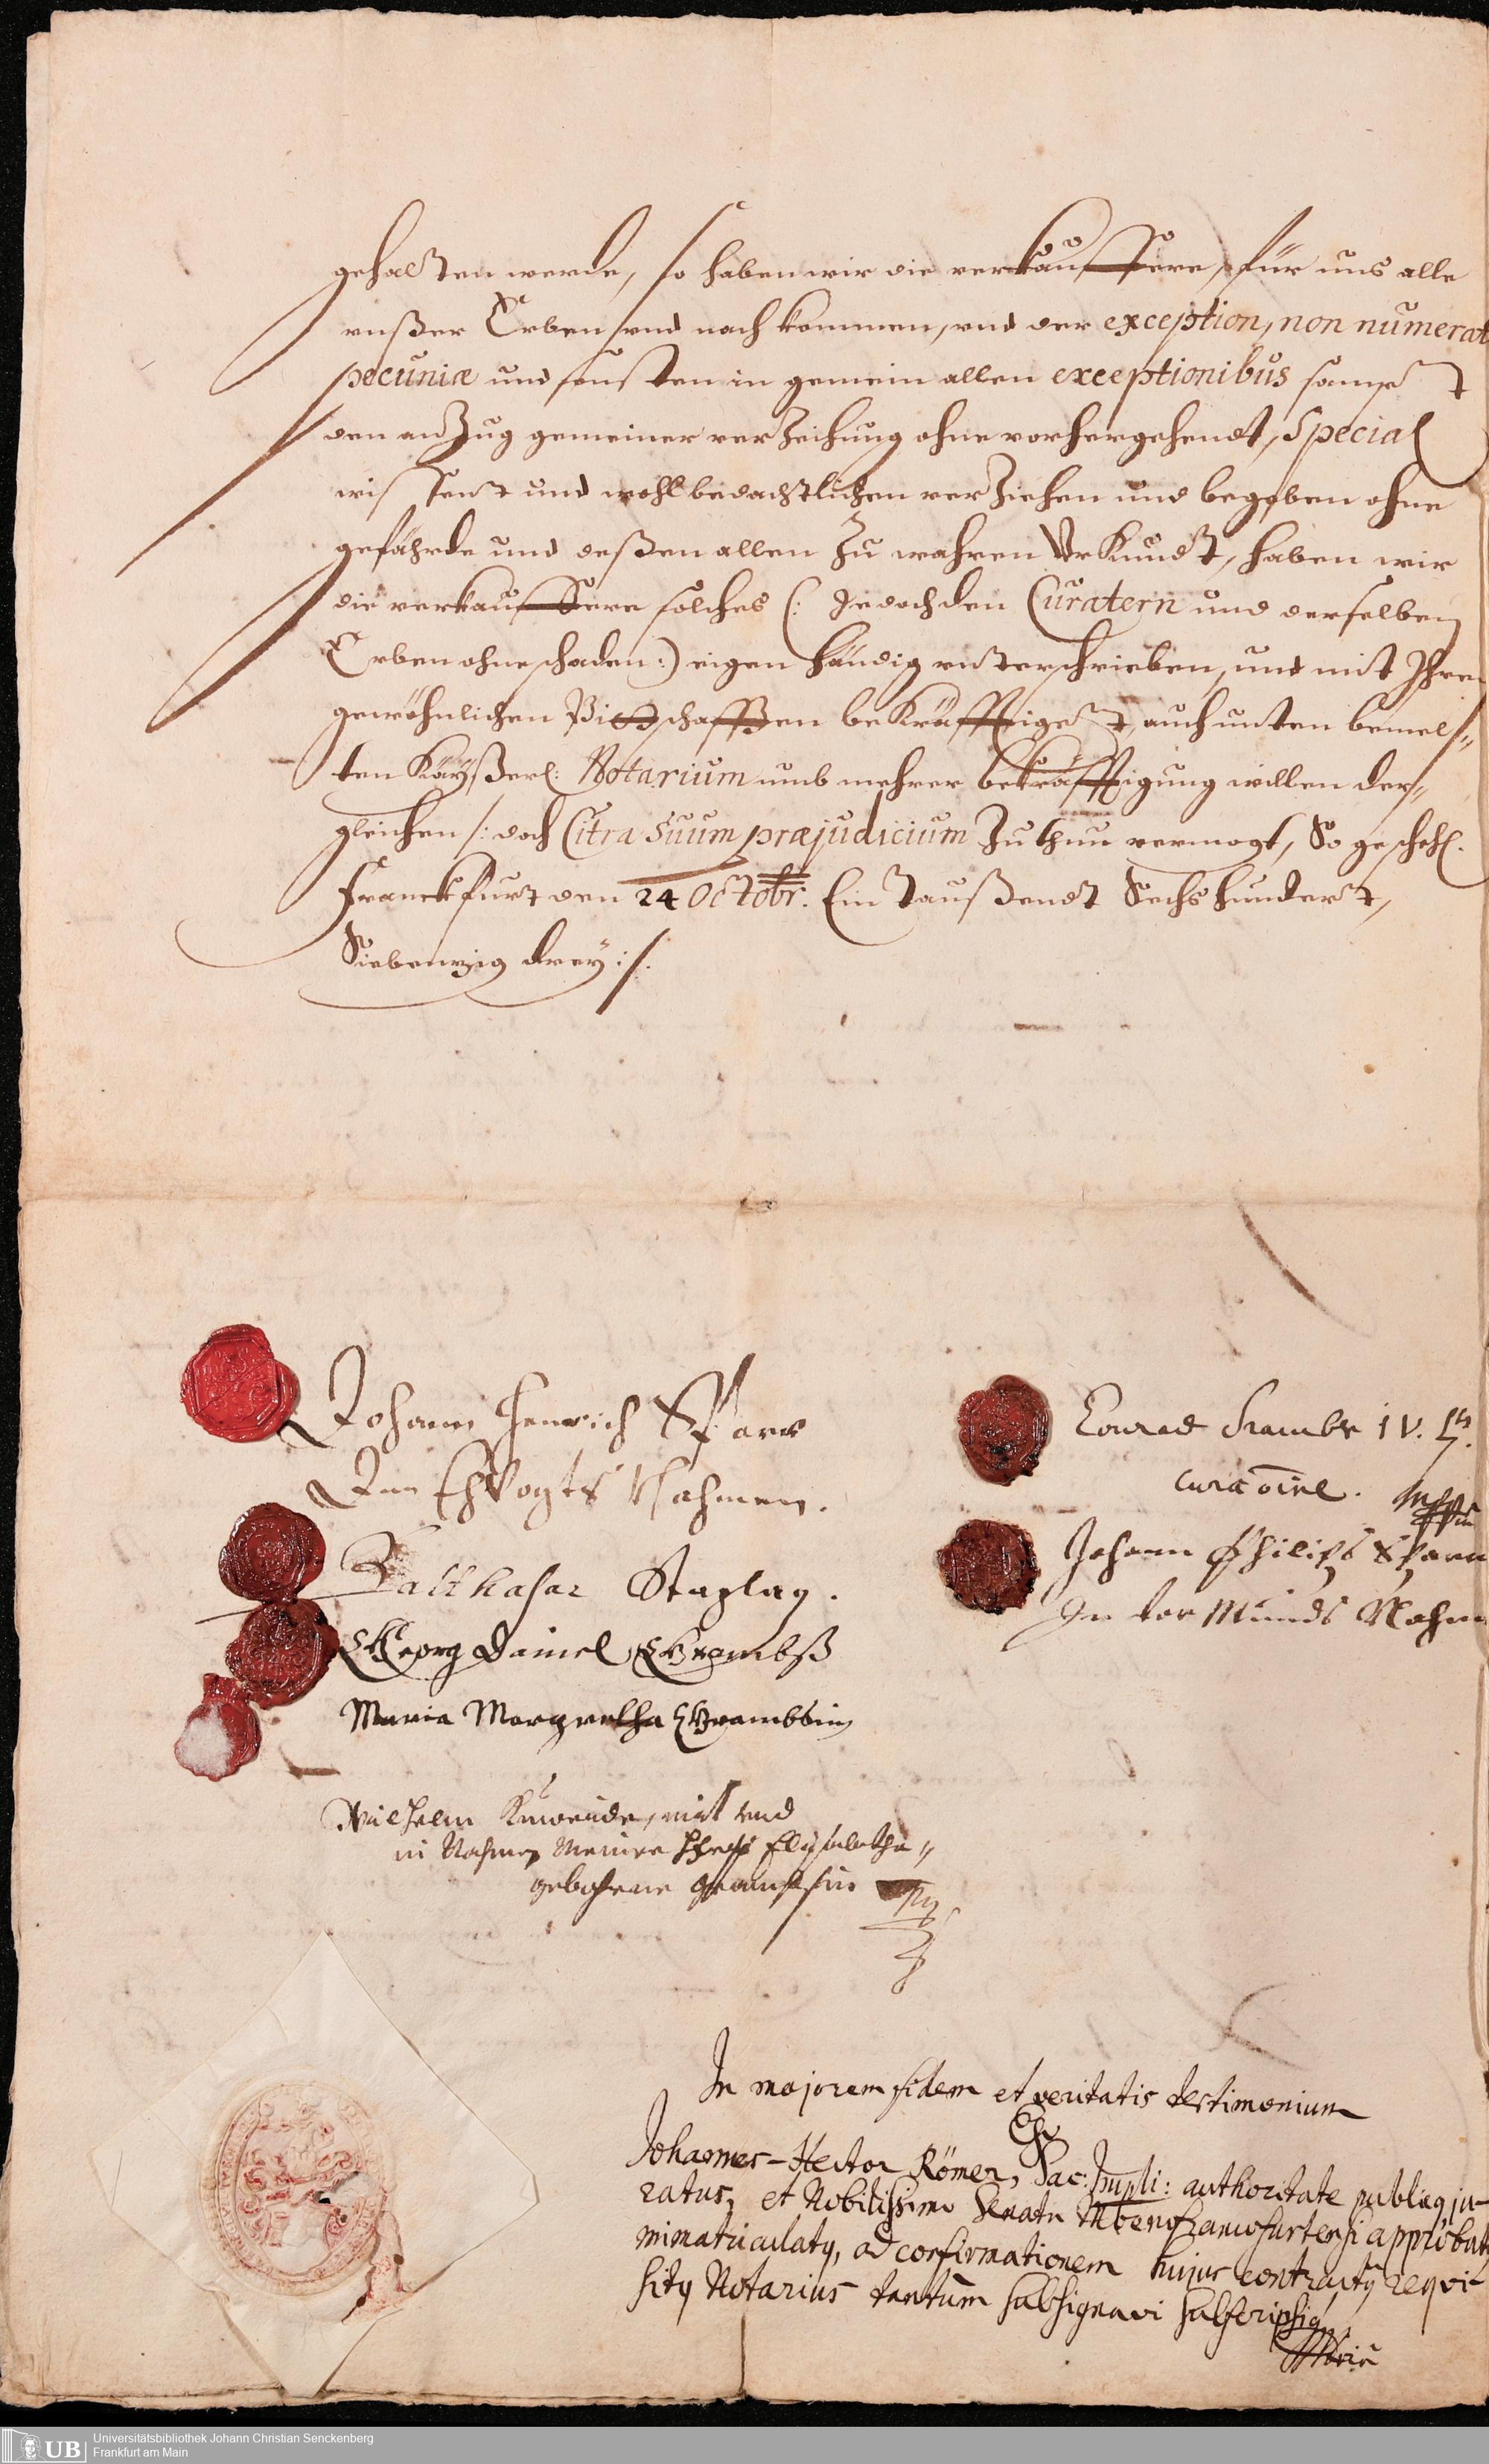 gehalten werde, so haben wir die verkauffere, für uns alle
unßer Erben und nachkommen, und der exception, non numerat
pecuniæ und sonsten in gemein allen exceptionibus sampt
den anzug gemeiner verzeihung ohne vorhergehendt, Special
wissent und wohlbedachtlichen verziehen und begeben ohne
gefährde und deßen allen zu wahren Urkundt, haben wir
die verkauffere solches (: Jedoch den Curatern und derselben
Erben ohne schaden :) eigenhändig unterschrieben, und mit Ihren
gewöhnlichen Pittschafften bekräfftiget, auch unten bemel„
ten Käyßerl: Notarium umb mehrer bekräfftigung willen der„
gleichen /: doch Citra Suum præjudicium zu thun vermogt, So gescheh.
Franckfurt den 24 Octobr: Ein Taußendt Sechshundert,
Siebenzig drey :/:
Johann Henrich Sparr
Im Ehvogts Nahmen.
Balthasar Staplag.
Georg Daniel Grambß
Maria Margretha Grambßin
Wilhelm mit und
in Nahmen Meiner Elysabetha„
gebohrne
Conrad Grambs
Johann Philips Sparr
In tor Munds Nahm
In majorem fidem et veritatis testimonium
Johannes-Hector Römer, Sac: Impli: authoritate publicq ju-
ratus, et Nobilissimo Senatu Moenofrancofurtensi approbat
immatriculatq, ad confirmationem hujus contractq requi-
sitq Notarius tantum subsignavi subscripsiq
UB
Universitätsbibliothek Johann Christian Senckenberg
Frankfurt am Main